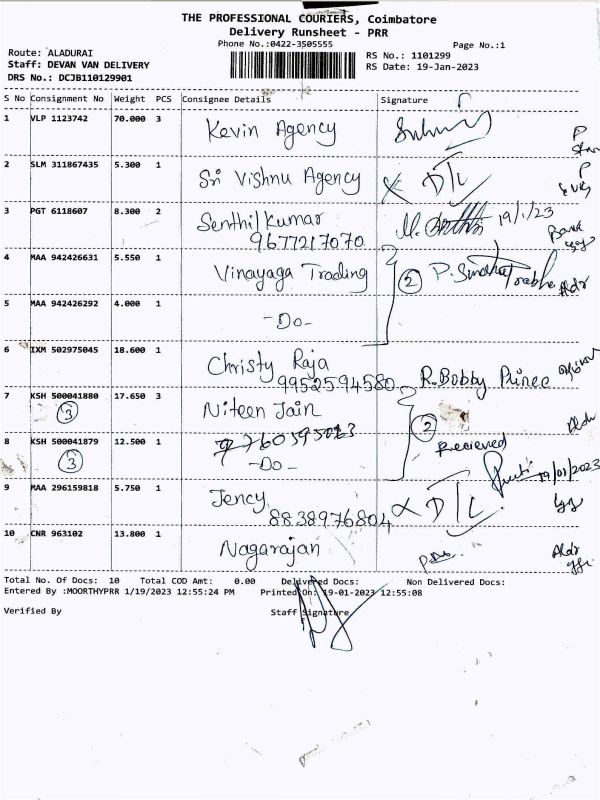 THE PROFESSIONAL COURIERS, Coimbatore
Delivery Runsheet - PRR
Phone No.:0422-3505555
Page No.:1
Route: ALADURAI
RS No.: 1101299
Staff: DEVAN VAN DELIVERY
RS Date: 19-Jan-2023
DRS No.: DCJB110129901
S No Consignment No Weight PCS Consignee Details Signature
1 VLP 1123742 70.000 3 Kevin Agency
2 SLM 311867435 5.300 1 Sri Vishnu Agency D/L
3 PGT 6118607 8.300 2 Senthil Kumar 19/1/23
9677217070
4 MAA 942426631 5.550 1 Vinayaga Trading 2
5 MAA 942426292 4.000 1 -Do-
6 IXM 502975045 18.600 1 Christy Raja R. Bobby Prince
9952594580
7 KSH 500041880 17.650 3 Niteen Jain
3 2
8 KSH 500041879 12.500 1 -Do- Recieved
3 19/01/2023
9 MAA 296159818 5.750 1 Jency D/L
8838976804
10 CNR 963102 13.800 1 Nagarajan
Total No. Of Docs: 10 Total COD Amt: 0.00 Delivered Docs: Non Delivered Docs:
Entered By :MOORTHYPRR 1/19/2023 12:55:24 PM Printed On: 19-01-2023 12:55:08
Verified By Staff Signature